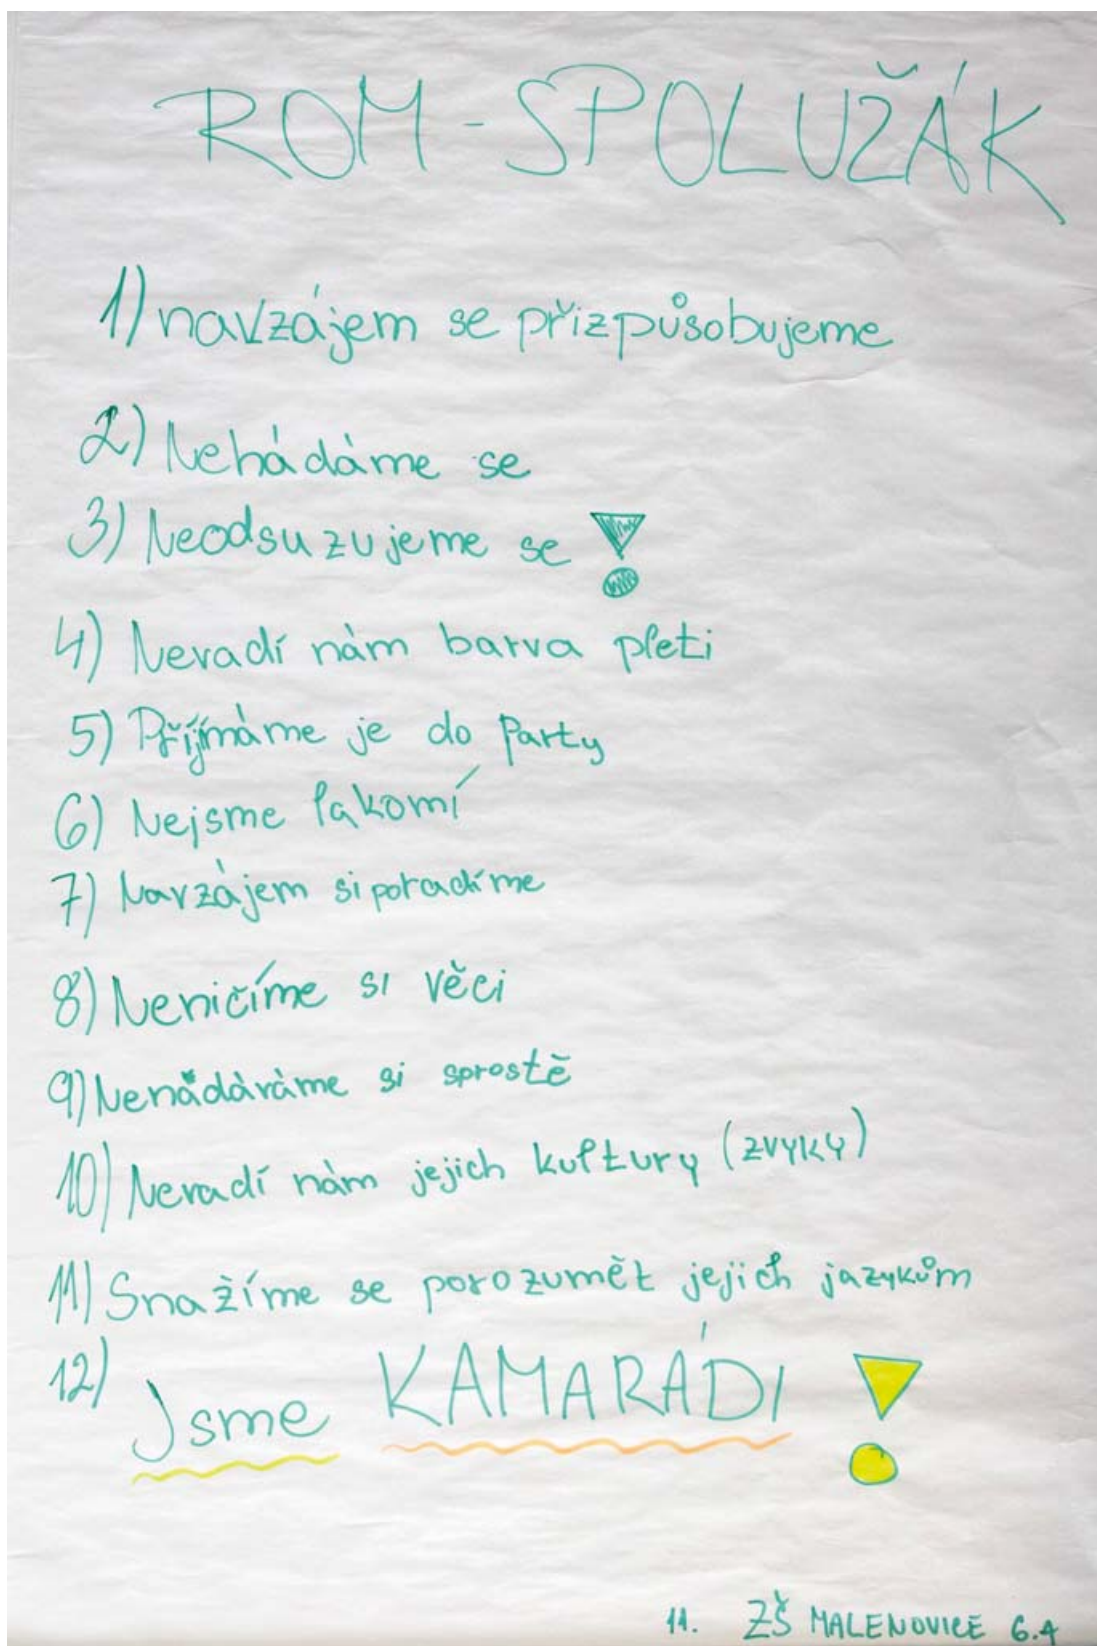 ROM-SPOLUŽÁK
1) navzájem se přizpůsobujeme
2) Nehádáme se
3) Neodsuzujeme se !
4) Nevadí nám barva pleti
5) Příjmáme je do Party
6) Nejsme lakomí
7) Navzájem si poradíme
8) Neničíme si věci
9) Nenadáváme si sprostě
10) Nevadí nám jejich kultury (zvyky)
11) Snažíme se porozumět jejich jazykům
12) Jsme KAMARÁDI !
11. ZŠ MALENOVICE 6.A